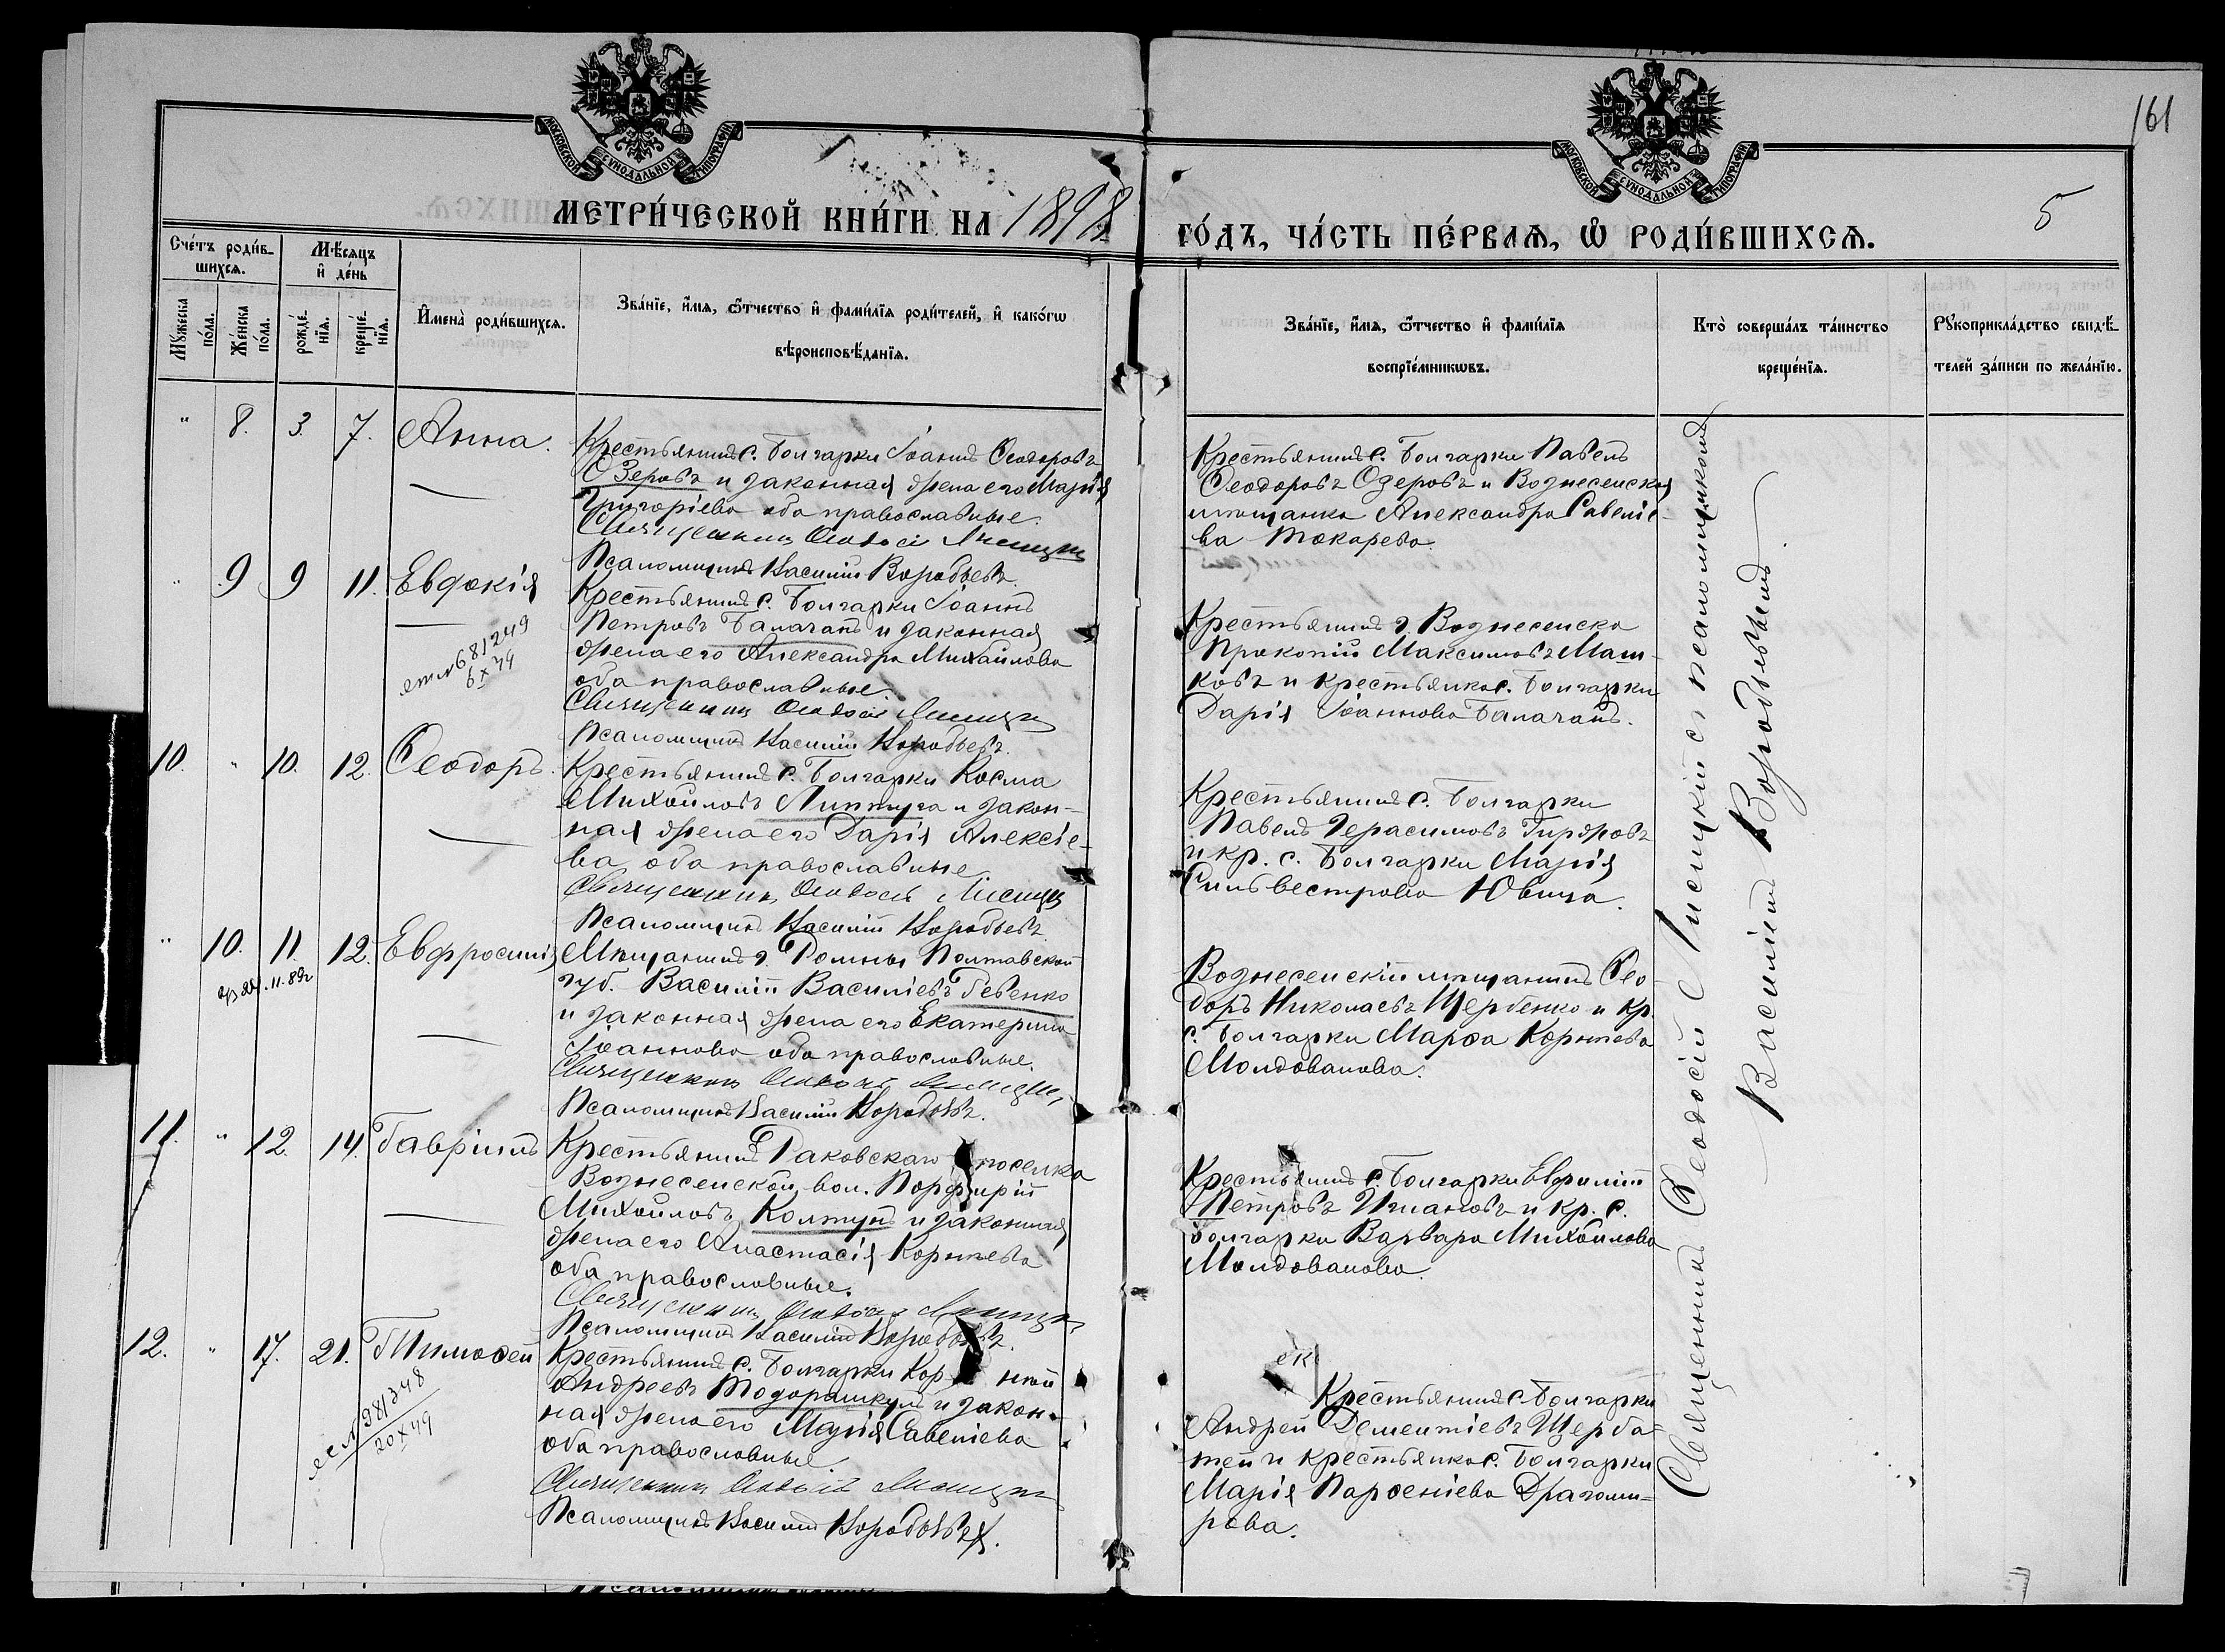 161
5
МОСКОВСКОЙ СУНОДАЛЬНОЙ ТИПОГРАФІИ
МОСКОВСКОЙ СУНОДАЛЬНОЙ ТИПОГРАФІИ
МЕТРИ́ЧЕСКОЙ КНИ́ГИ НА 1898
ГО́ДЪ, ЧА́СТЬ ПЕ́РВАѦ, Ѡ РОДИ́ВШИХСѦ.
Сче́тъ роди́в-
шихсѧ.
Мꙋ́жеска
по́ла.
Же́нска
по́ла.
Мѣ́сѧцъ
и҆ де́нь
рожде́-
нїѧ.
креще́-
нїѧ.
И҆мена̀ роди́вшихсѧ.
Зва́нїе, и҆́мѧ, ѻ҆́тчество и҆ фами́лїѧ роди́телей, и҆ како́гѡ
вѣроисповѣ́данїѧ.
Зва́нїе, и҆́мѧ, ѻ҆́тчество и҆ фами́лїѧ
воспрїе́мникѡвъ.
Кто̀ соверша́лъ та́инство
креще́нїѧ.
Рꙋкоприкла́дство свидѣ́-
телей за́писи по жела́нїю.
" 8. 3. 7. Анна.
Крестьянинъ с. Болгарки Іоаннъ Ѳеодоровъ
Озеровъ и законная жена его Марія
Григоріева оба православные.
Священникъ Ѳеодосій Лисицкій
Псаломщикъ Василій Воробьевъ.
Крестьянинъ с. Болгарки Павелъ
Ѳеодоровъ Озеровъ и Вознесенская
мѣщанка Александра Савеліе-
ва Токарева.
" 9 9 11. Евдокія
681249
6 X 49
Крестьянинъ с. Болгарки Іоаннъ
Петровъ Балачанъ и законная
жена его Александра Михайлова
оба православные.
Священникъ Ѳеодосій Лисицкій
Псаломщикъ Василій Воробьевъ.
Крестьянинъ г. Вознесенска
Прокопій Максимовъ Маш-
ковъ и крестьянка с. Болгарки
Дарія Іоаннова Балачанъ.
10. " 10. 12. Ѳеодоръ.
Крестьянинъ с. Болгарки Косма
Михайловъ Липтуга и закон-
ная жена его Дарія Алексіе-
ва, оба православные
Священникъ Ѳеодосій Лисицкій
Псаломщикъ Василій Воробьевъ
Крестьянинъ с. Болгарки
Павелъ Герасимовъ
и кр. с. Болгарки Марія
Сильвестрова
" 10. 11. 12. Евфросинія
Мѣщанинъ г. Ромны Полтавской
губ. Василій Василіевъ Гевенко
и законная жена его Екатерина
Іоаннова оба православные.
Священникъ Ѳеодосій Лисицкій
Псаломщикъ Василій Воробьевъ.
Вознесенскій мѣщанинъ Ѳео-
доръ Николаевъ Щербенко и кр.
с. Болгарки Марѳа Корнѣева
Молдованова.
11. " 12. 14. Гавріилъ
Крестьянинъ Раковскаго поселка
Вознесенской вол. Порфирій
Михайловъ Колтунъ и законная
жена его Анастасія Корнѣева
оба православные.
Священникъ Ѳеодосій Лисицкій
Псаломщикъ Василій Воробьевъ.
Крестьянинъ с. Болгарки Евфимій
Петровъ и кр. с.
Болгарки Варвара Михайлова
Молдованова.
12. " 17. 21. Тимоѳей
981248
20 X 49
Крестьянинъ с. Болгарки Кор нѣй
Андреевъ Тодорашкулъ и закон-
ная жена его Марія Савеліева
оба православные.
Священникъ Ѳеодосій Лисицкій
Псаломщикъ Василій Воробьевъ.
Крестьянинъ с. Болгарки
Андрей Дементіевъ Щерба-
тей и крестьянка с. Болгарки
Марія Парѳеніева Драгоми-
рова.
Священникъ Ѳеодосій Лисицкій съ псаломщикомъ
Василіемъ Воробьевымъ.